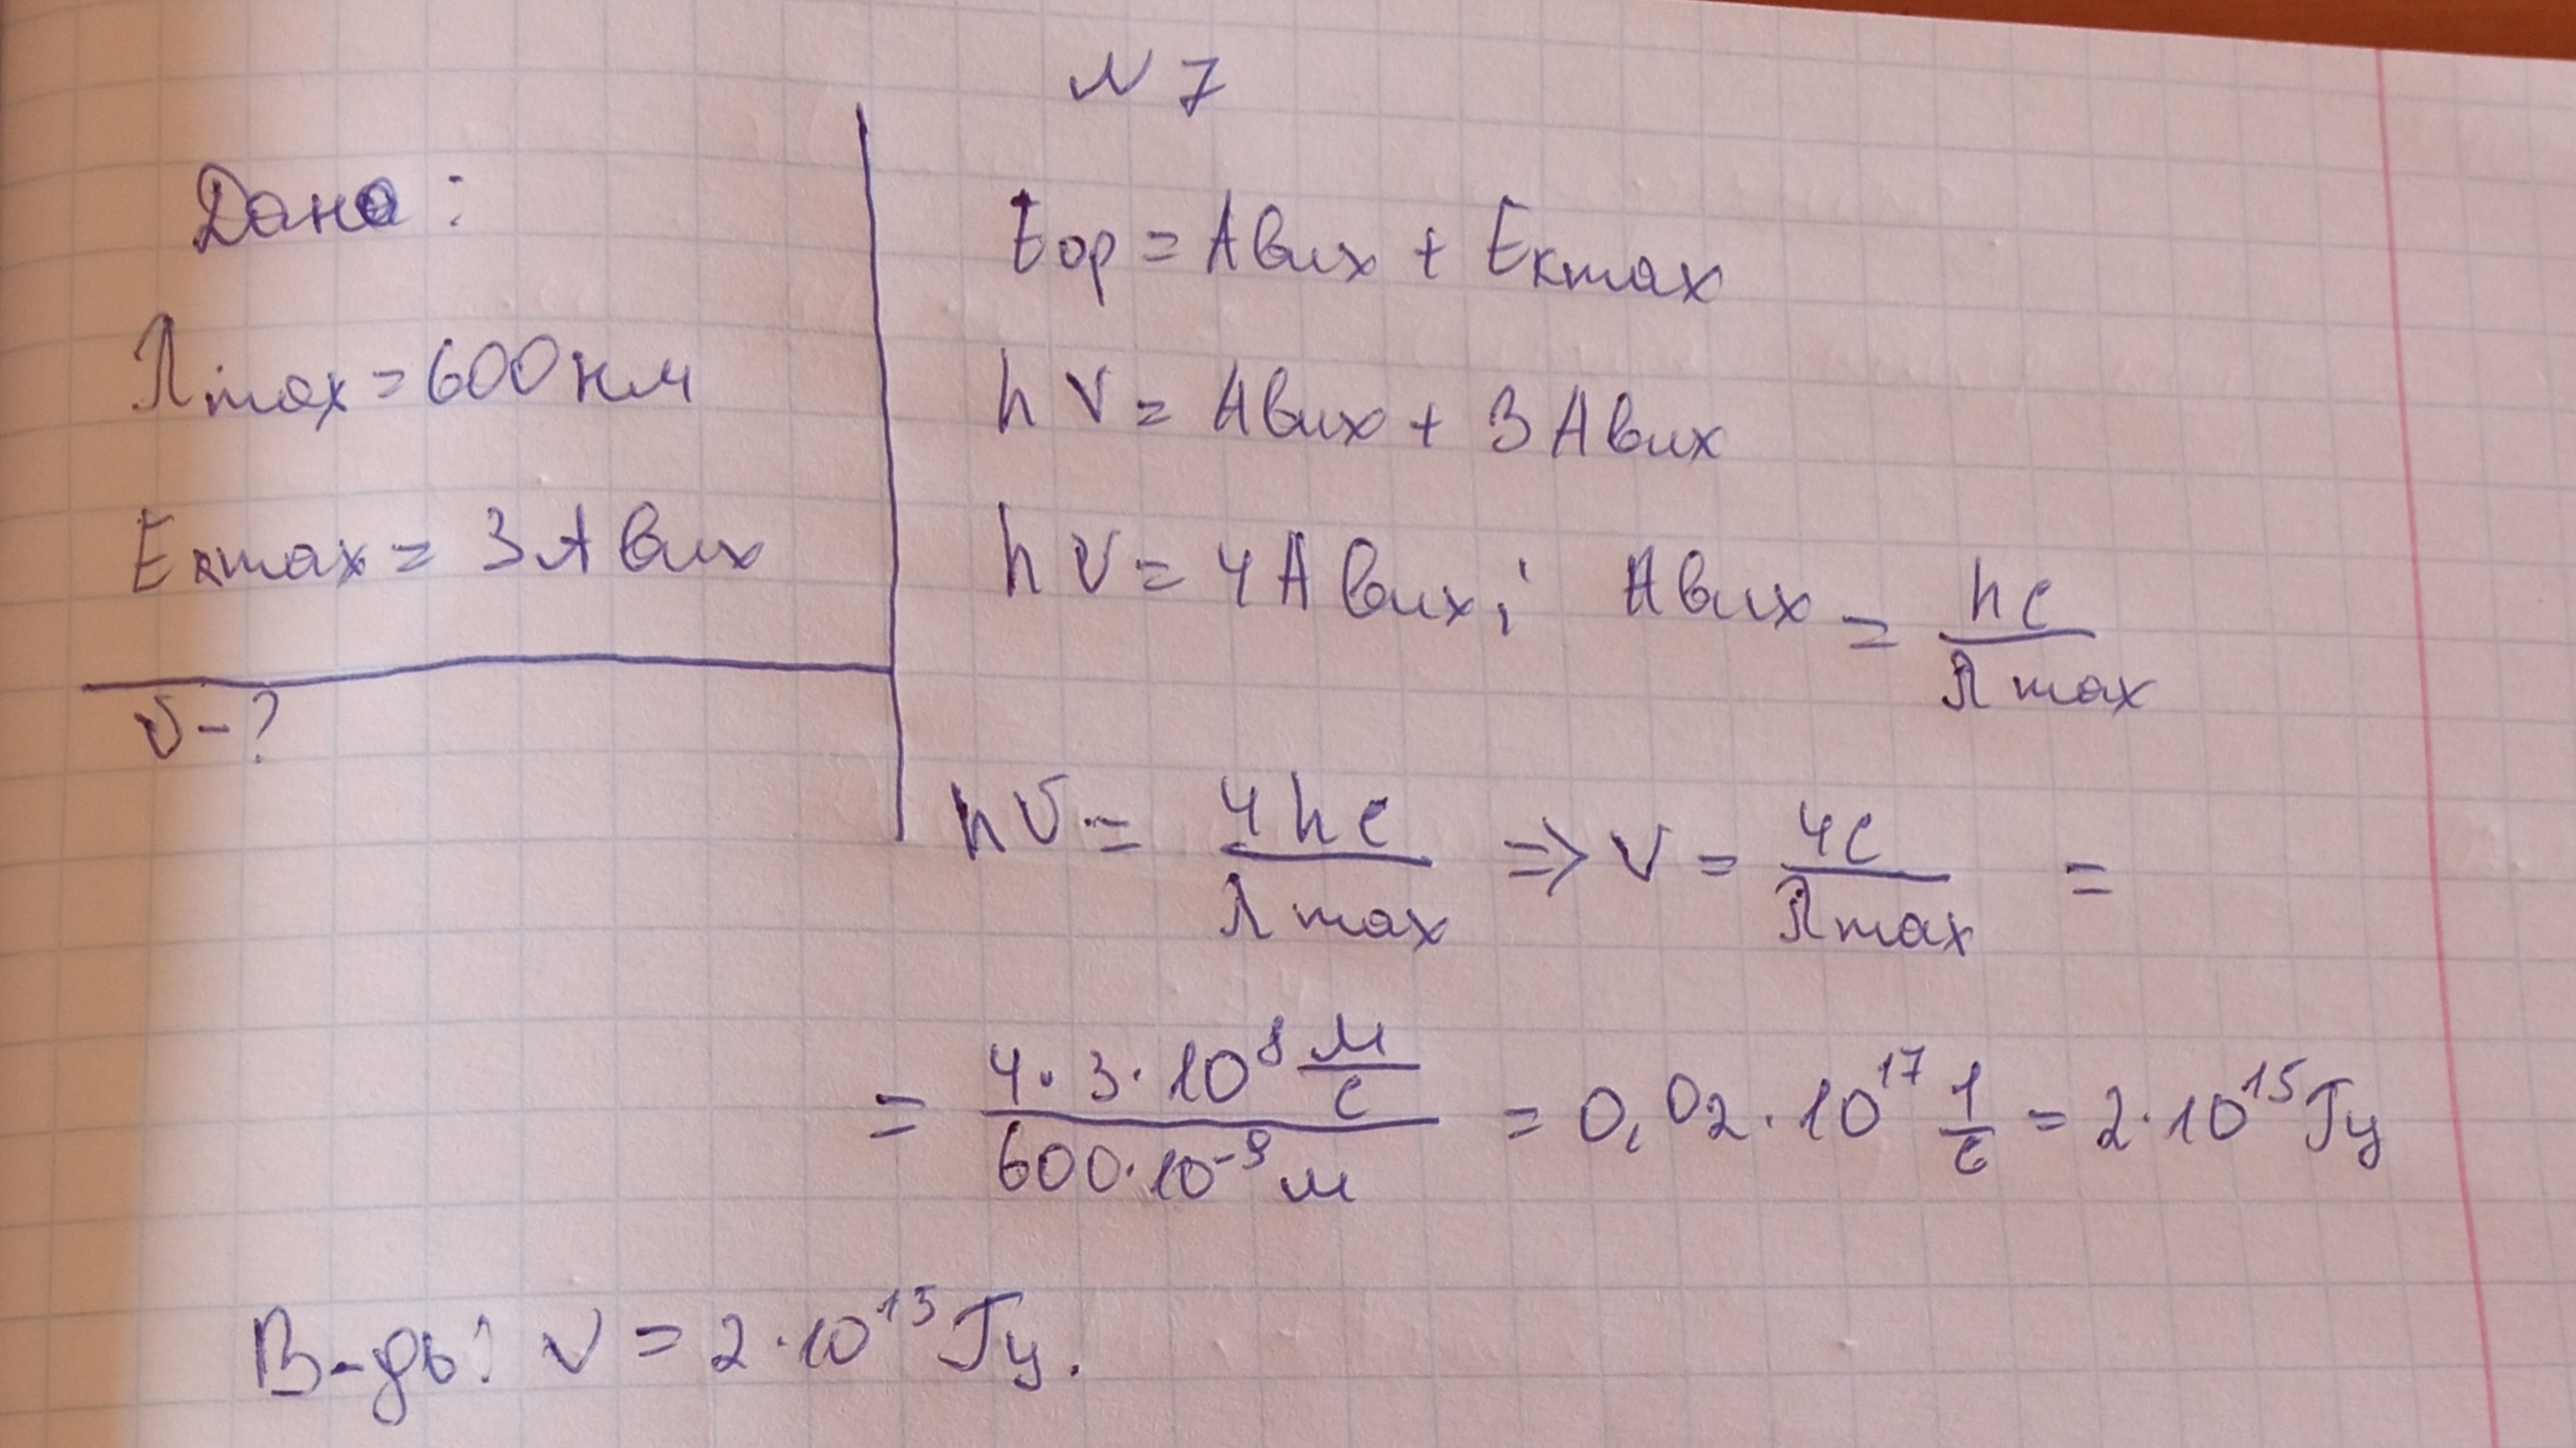 N 7
Дано:
λmax = 600 нм
Eкmax = 3 Aвих
ν - ?
Eφ = Aвих + Eкmax
hν = Aвих + 3 Aвих
hν = 4 Aвих; Aвих = hc/λmax
hν = 4hc/λmax ⇒ ν = 4c/λmax =
= 4·3·10⁸ м/с / 600·10⁻⁹ м = 0,02·10¹⁷ 1/с = 2·10¹⁵ Гц
В-дь: ν = 2·10¹⁵ Гц.